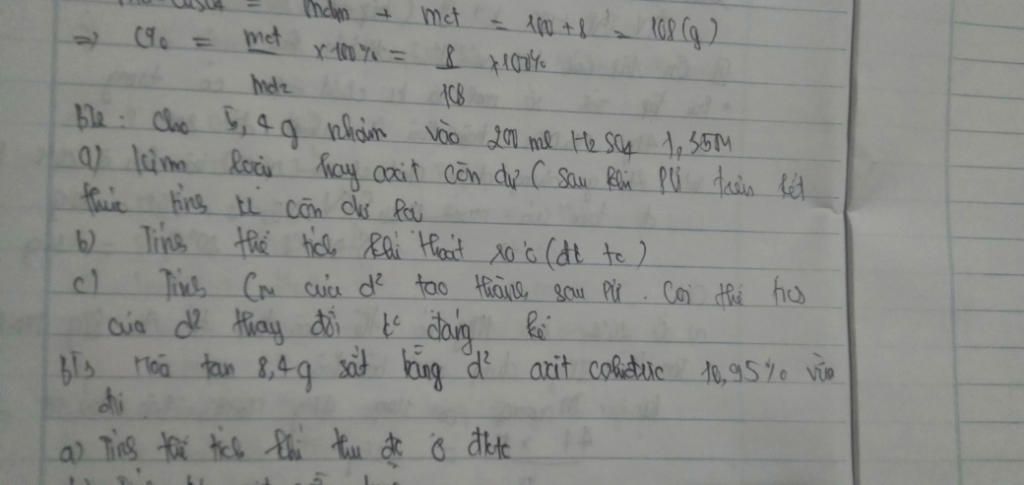 = mdm + mct = 100 + 8 = 108 (g)
=> C% = mct/mdd × 100% = 8/108 × 100%
Bt2: Cho 5,4 g nhôm vào 200 ml H2SO4 1,35M
a) kim loại hay axit còn dư (sau khi PƯ trên kết
thúc tính kl còn dư lại
b) Tính thể tích khí thoát ra ở (đk tc)
c) Tính CM của d² tạo thành sau PƯ. Coi thể tích
của d² thay đổi k đáng kể
Bt3 Hoà tan 8,4g sắt bằng d² axit clohiđric 10,95% vừa
đủ
a) Tính thể tích khí thu đc ở đktc